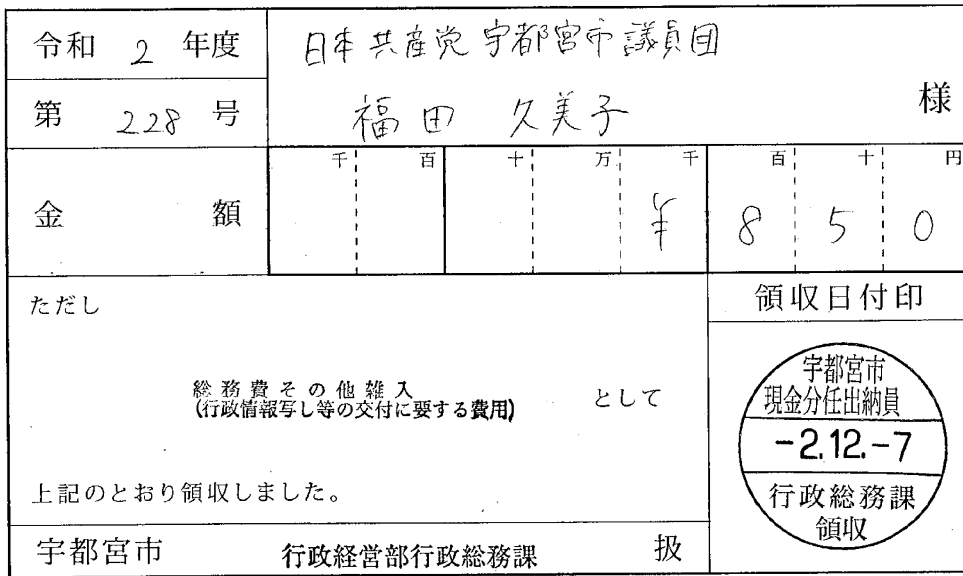 令和 2 年度
日本共産党宇都宮市議員団
第 228 号
福田 久美子 様
千 百 十 万 千 百 十 円
金 額 ¥ 8 5 0
ただし
総務費その他雑入
(行政情報写し等の交付に要する費用) として
上記のとおり領収しました。
宇都宮市 行政経営部行政総務課 扱
領収日付印
宇都宮市
現金分任出納員
-2.12.-7
行政総務課
領収